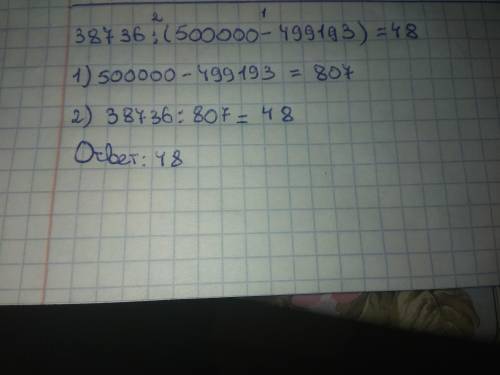 2 1
38736:(500000-499193)=48
1) 500000-499193 = 807
2) 38736:807= 48
Ответ: 48